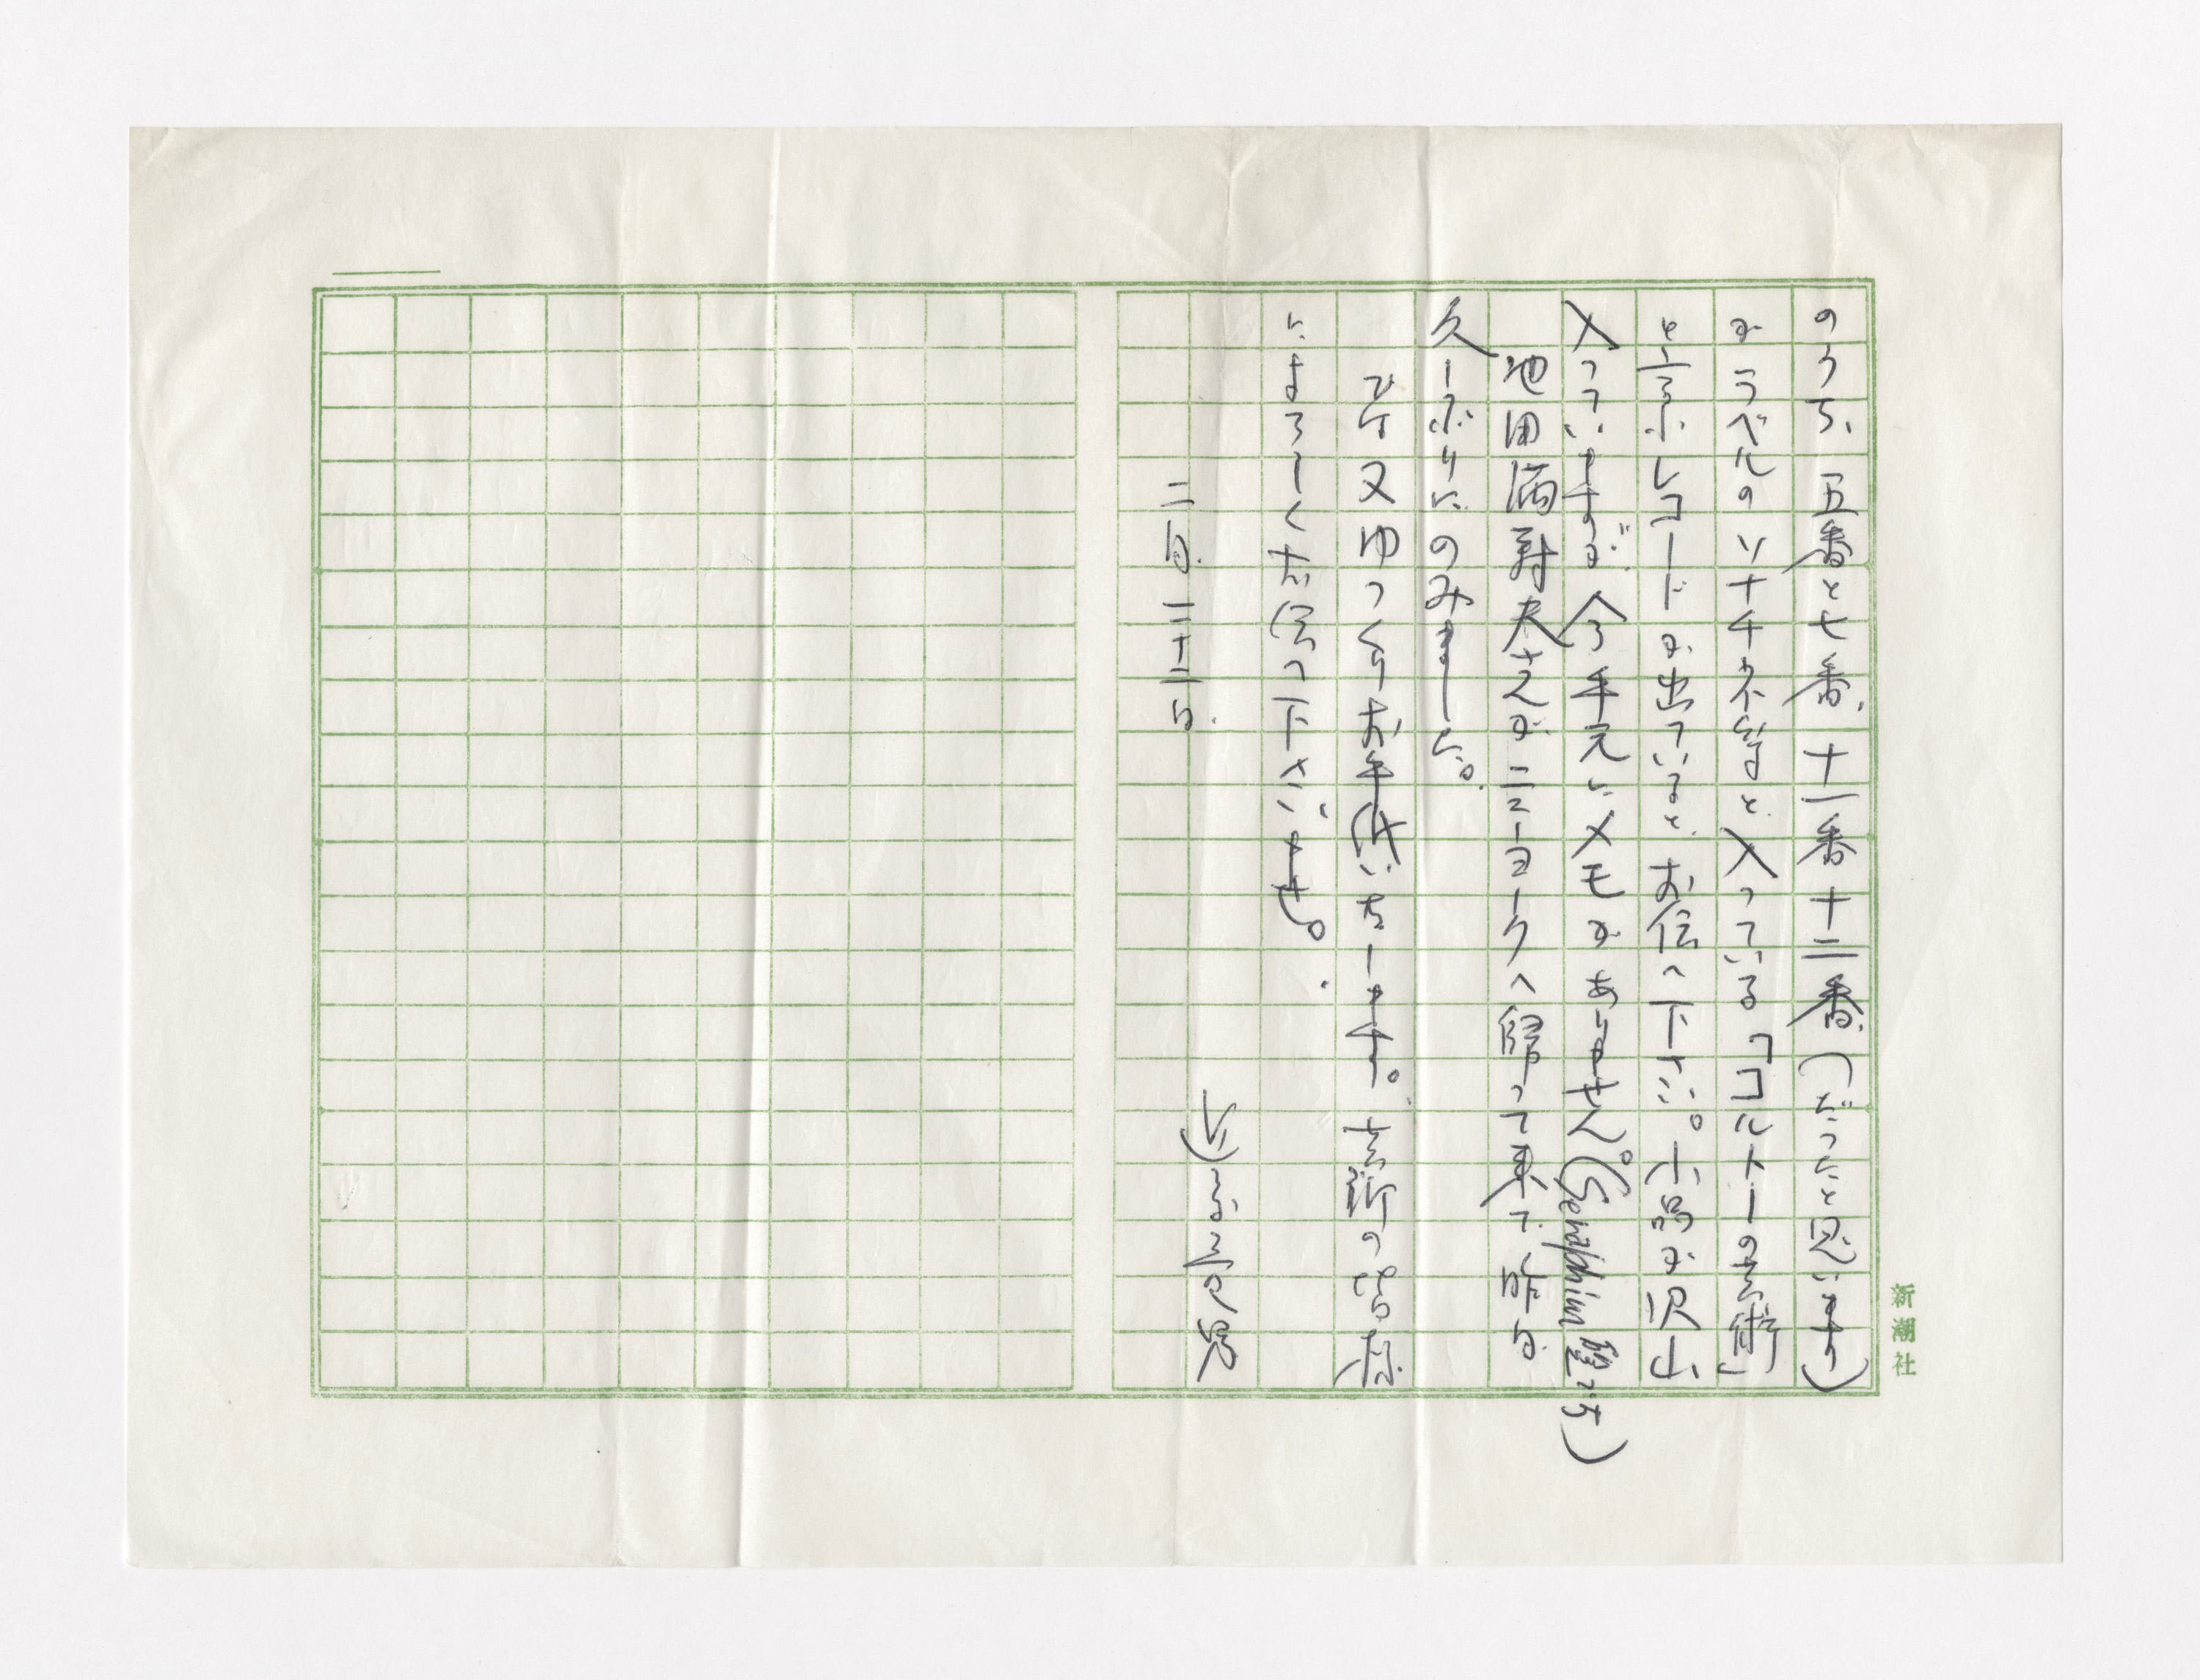 のうち、五番と七番、十一番十二番(だったと思います)
がラベルのソナチネ等と入っている「コルトーの芸術」
と言うレコードが出ていると、お伝へ下さい。小品が沢山
入っていますが、今手元にメモがありません。(Seraphim盤です)
池田満寿夫さんがニューヨークへ帰って来て、昨日
久しぶりにのみました。
では又ゆっくりお手紙いたします。芸新の皆様
によろしくお伝へ下さいませ。
二月二十二日
新潮社